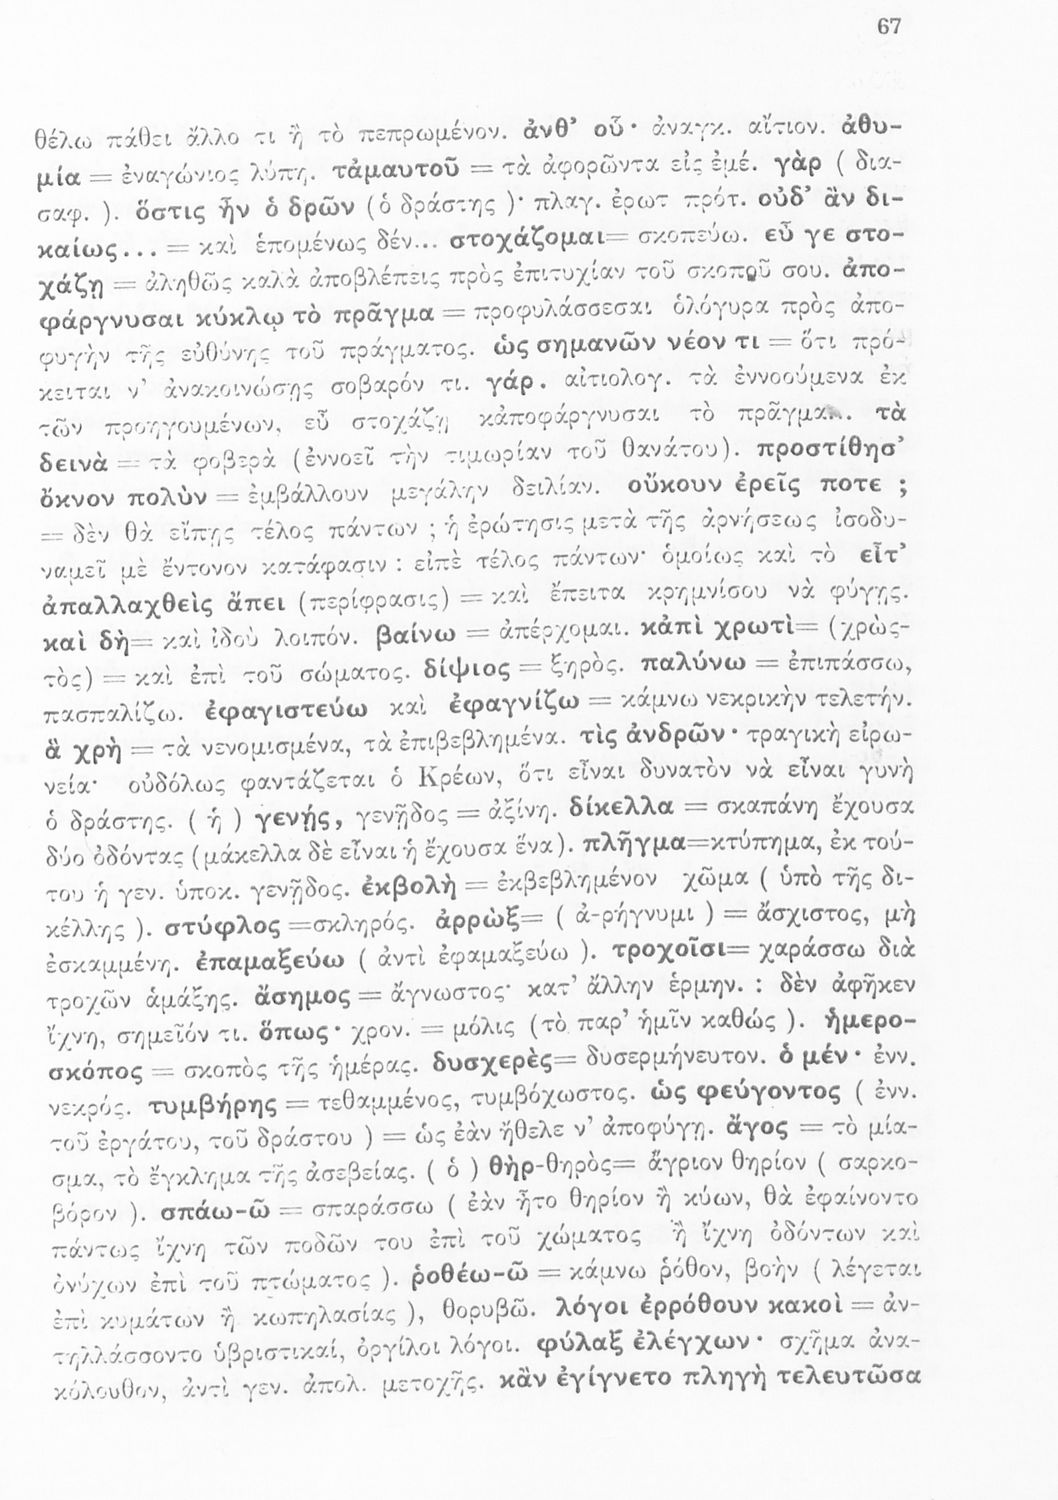 67
θέλω πάθει ἄλλο τι ἢ τὸ πεπρωμένον. ἀνθ’ οὗ· ἀναγκ. αἴτιον. ἀθυ-
μία = ἐναγώνιος λύπη. τἀμαυτοῦ = τὰ ἀφορῶντα εἰς ἐμέ. γὰρ ( δια-
σαφ. ). ὅστις ἦν ὁ δρῶν (ὁ δράστης )· πλαγ. ἐρωτ πρότ. οὐδ’ ἂν δι-
καίως... = καὶ ἑπομένως δέν... στοχάζομαι= σκοπεύω. εὖ γε στο-
χάζῃ = ἀληθῶς καλὰ ἀποβλέπεις πρὸς ἐπιτυχίαν τοῦ σκοποῦ σου. ἀπο-
φάργνυσαι κύκλῳ τὸ πρᾶγμα = προφυλάσσεσαι ὁλόγυρα πρὸς ἀπο-
φυγὴν τῆς εὐθύνης τοῦ πράγματος. ὡς σημανῶν νέον τι = ὅτι πρό-
κειται ν’ ἀνακοινώσῃς σοβαρόν τι. γάρ. αἰτιολογ. τὰ ἐννοούμενα ἐκ
τῶν προηγουμένων, εὖ στοχάζῃ κἀποφάργνυσαι τὸ πρᾶγμα... τὰ
δεινὰ = τὰ φοβερὰ (ἐννοεῖ τὴν τιμωρίαν τοῦ θανάτου). προστίθησ’
ὄκνον πολὺν = ἐμβάλλουν μεγάλην δειλίαν. οὔκουν ἐρεῖς ποτε ;
= δὲν θὰ εἴπῃς τέλος πάντων ; ἡ ἐρώτησις μετὰ τῆς ἀρνήσεως ἰσοδυ-
ναμεῖ μὲ ἔντονον κατάφασιν : εἰπὲ τέλος πάντων· ὁμοίως καὶ τὸ εἶτ’
ἀπαλλαχθεὶς ἄπει (περίφρασις) = καὶ ἔπειτα κρημνίσου νὰ φύγῃς.
καὶ δὴ= καὶ ἰδοὺ λοιπόν. βαίνω = ἀπέρχομαι. κἀπὶ χρωτὶ= (χρὼς-
τὸς) = καὶ ἐπὶ τοῦ σώματος. δίψιος = ξηρὸς. παλύνω = ἐπιπάσσω,
πασπαλίζω. ἐφαγιστεύω καὶ ἐφαγνίζω = κάμνω νεκρικὴν τελετήν.
ἃ χρὴ = τὰ νενομισμένα, τὰ ἐπιβεβλημένα. τὶς ἀνδρῶν· τραγικὴ εἰρω-
νεία· οὐδόλως φαντάζεται ὁ Κρέων, ὅτι εἶναι δυνατὸν νὰ εἶναι γυνὴ
ὁ δράστης. ( ἡ ) γενῄς, γενῇδος = ἀξίνη. δίκελλα = σκαπάνη ἔχουσα
δύο ὀδόντας (μάκελλα δὲ εἶναι ἡ ἔχουσα ἕνα). πλῆγμα=κτύπημα, ἐκ τού-
του ἡ γεν. ὑποκ. γενῇδος. ἐκβολὴ = ἐκβεβλημένον χῶμα ( ὑπὸ τῆς δι-
κέλλης ). στύφλος =σκληρός. ἀρρὼξ= ( ἀ-ρήγνυμι ) = ἄσχιστος, μὴ
ἐσκαμμένη. ἐπαμαξεύω ( ἀντὶ ἐφαμαξεύω ). τροχοῖσι= χαράσσω διὰ
τροχῶν ἁμάξης. ἄσημος = ἄγνωστος· κατ’ ἄλλην ἑρμην. : δὲν ἀφῆκεν
ἴχνη, σημεῖόν τι. ὅπως· χρον. = μόλις (τὸ παρ’ ἡμῖν καθώς ). ἡμερο-
σκόπος = σκοπὸς τῆς ἡμέρας. δυσχερὲς= δυσερμήνευτον. ὁ μέν· ἐνν.
νεκρός. τυμβήρης = τεθαμμένος, τυμβόχωστος. ὡς φεύγοντος ( ἐνν.
τοῦ ἐργάτου, τοῦ δράστου ) = ὡς ἐὰν ἤθελε ν’ ἀποφύγῃ. ἄγος = τὸ μία-
σμα, τὸ ἔγκλημα τῆς ἀσεβείας. ( ὁ ) θὴρ-θηρὸς= ἄγριον θηρίον ( σαρκο-
βόρον ). σπάω-ῶ = σπαράσσω ( ἐὰν ἦτο θηρίον ἢ κύων, θὰ ἐφαίνοντο
πάντως ἴχνη τῶν ποδῶν του ἐπὶ τοῦ χώματος ἢ ἴχνη ὀδόντων καὶ
ὀνύχων ἐπὶ τοῦ πτώματος ). ῥοθέω-ῶ = κάμνω ῥόθον, βοὴν ( λέγεται
ἐπὶ κυμάτων ἢ κωπηλασίας ), θορυβῶ. λόγοι ἐρρόθουν κακοὶ = ἀν-
τηλλάσσοντο ὑβριστικαί, ὀργίλοι λόγοι. φύλαξ ἐλέγχων· σχῆμα ἀνα-
κόλουθον, ἀντὶ γεν. ἀπολ. μετοχῆς. κἂν ἐγίγνετο πληγὴ τελευτῶσα